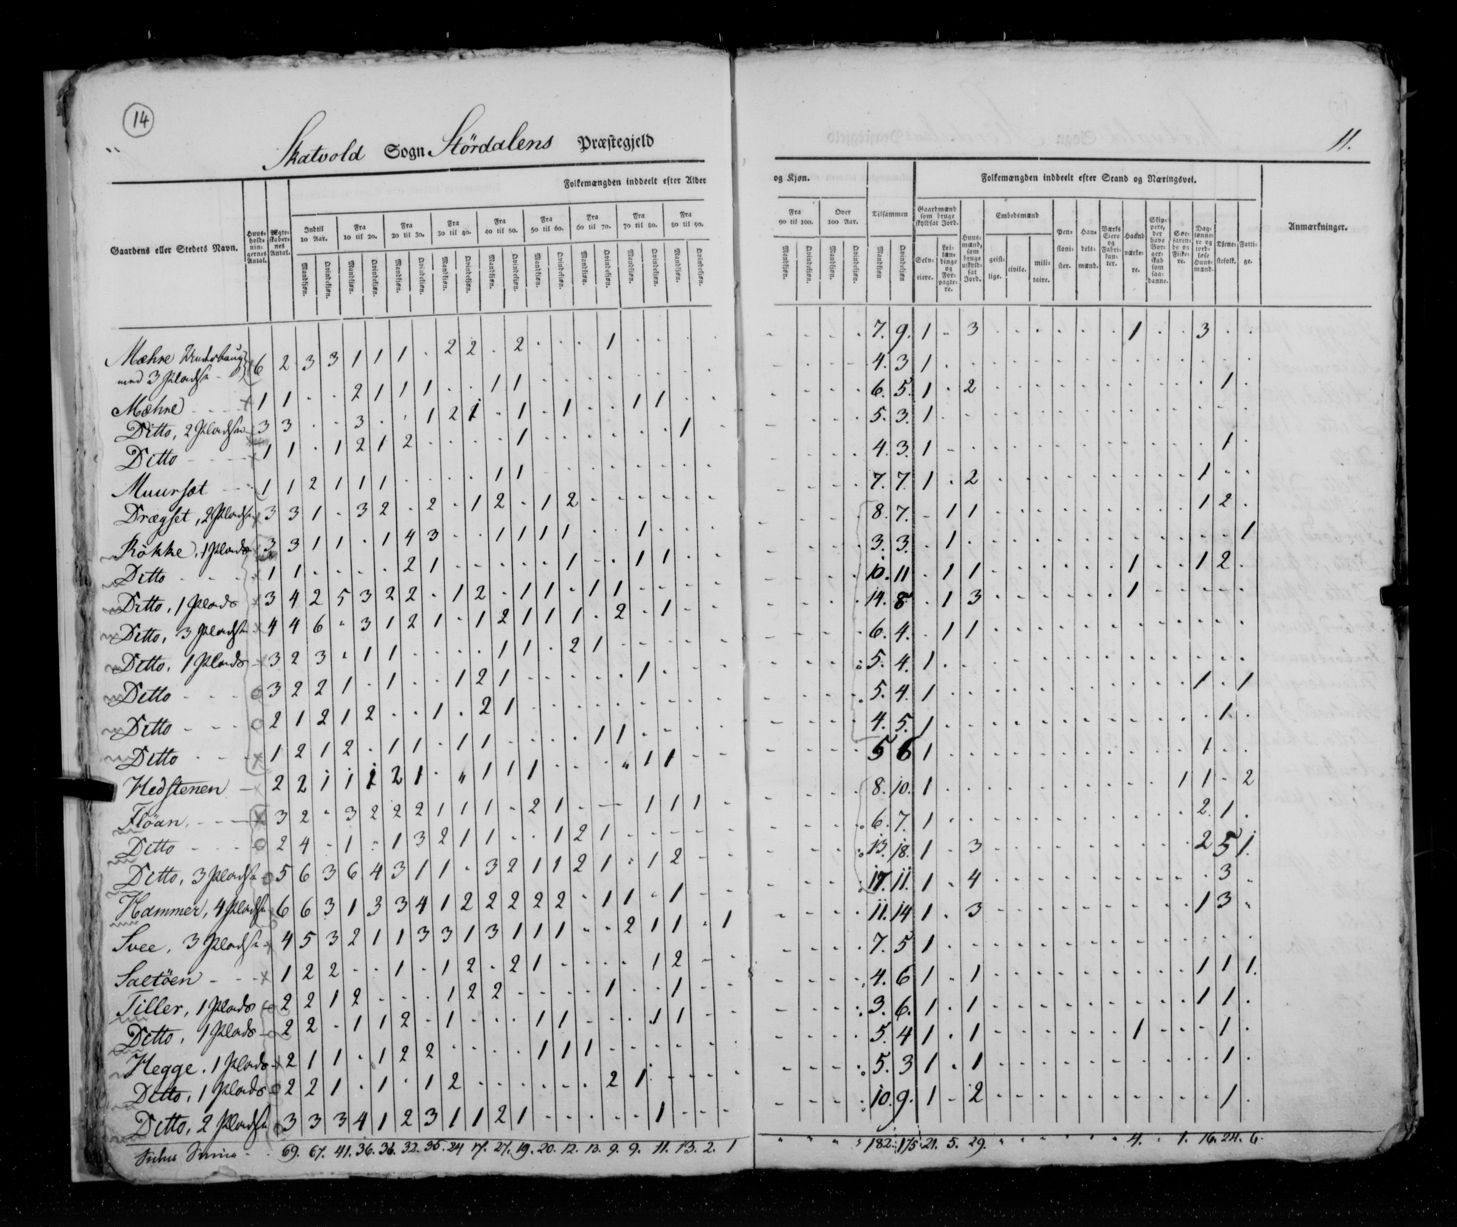 14
Skatvold Sogn Størdalens Præstegjeld
11.
Gaardens eller Stedets Navn.
Huusholdningernes Antal.
Ægteskabernes Antal.
Folkemængden inddeelt efter Alder
og Kjøn.
Indtil 10 Aar.
Fra 10 til 20.
Fra 20 til 30.
Fra 30 til 40.
Fra 40 til 50.
Fra 50 til 60.
Fra 60 til 70.
Fra 70 til 80.
Fra 80 til 90.
Fra 90 til 100.
Over 100 Aar.
Tilsammen
Mandkjøn. Qvindekjøn.
Folkemængden inddeelt efter Stand og Næringsvei.
Gaardmænd som bruge skyldsat Jord.
Selveiere.
Leilændinge og Forpagtere.
Huusmænd, som bruge uskyldsat Jord.
Embedsmænd
geistlige. civile. militaire.
Pensionister.
Handelsmænd.
Haandværkere.
Tjenestefolk.
Fattige.
Anmærkninger.
Mæhre
med 3 Pladse 6 2 3 3 1 1 1 . 2 2 . 2 . . . 1 7. 9. 1 - 3 1 3
Mæhre 1 1 . . 2 1 1 1 . . 1 1 4. 3. 1
Ditto, 2 Pladse 3 3 . . 3 . . 1 2 1 . 1 . 1 . . 1 1 6. 5. 1 . 2 1
Ditto 1 1 . 1 2 1 2 . . . . 1 . . . . . . 1 5. 3. 1
Muursæt 1 1 2 1 1 1 . . . . 1 1 4. 3. 1 1
Drægset, 2 Pladse 3 3 1 . 3 2 . 2 . 1 2 . 1 2 7. 7. 1 . 2 1
Røkke, 1 Plads 3 3 1 1 . 1 4 3 . . 1 1 1 1 . . 1 8. 7. . 1 1 1 2
Ditto 1 1 . . . . 2 1 . . . . . 1 . . 1 1 3. 3. . 1 1
Ditto, 1 Plads 3 4 2 5 3 2 2 . 1 2 . 1 1 . 1 1 10. 11. . 1 1 1 1 2
Ditto, 3 Pladse 4 4 6 . 3 1 2 1 . 1 2 1 1 1 . 2 . 1 14. 8. . 1 3 1
Ditto, 1 Plads 3 2 3 . 1 1 . . . . 1 1 . 2 1 6. 4. . 1 1
Ditto 3 2 2 1 . 1 . . 1 2 1 . . . . . 1 5. 4. 1
Ditto 2 1 2 1 2 . . 1 . 2 1 5. 4. 1 1 . 1
Ditto 1 2 1 2 . 1 1 . 1 1 . . . . 1 1 4. 5. 1 1
Hedstenen 2 2 1 1 1 2 1 . " 1 1 1 . . . " 1 1 5 6 1 1
Fløan 3 2 . 3 2 2 2 1 1 1 . 2 1 . . . 1 1 1 8. 10. 1 1 1 - 2
Ditto 2 4 . 1 . 1 3 2 1 1 . . 1 2 1 6. 7. 1 2 1
Ditto, 3 Pladse 5 6 3 6 4 3 1 1 . 3 2 1 1 2 1 . 1 2 13. 18. 1 - 3 2 5 1.
Hammer, 4 Pladse 6 6 3 1 3 3 4 1 2 2 2 2 2 . 1 1 . 1 17. 11. 1 . 4 3
Svee, 3 Pladse 4 5 3 2 1 1 3 3 1 3 1 1 1 . . 2 1 1 . 1 11. 14 1 . 3 1 3
Saltöen 1 2 2 . . 1 . 1 2 . 2 1 . . . . 1 2 7. 5 1
Tiller, 1 Plads 2 2 1 2 . . . 1 2 2 . . . . 1 . . 1 4. 6 1 . 1 1 1 1.
Ditto, 1 Plads 2 2 . 1 1 2 . 1 . . . 1 1 . . . 1 1 3. 6. 1 . 1 1 1
Hegge, 1 Plads 2 1 1 . 1 2 2 . . . . 1 1 1 5. 4 1 . 1 1 1
Ditto, 1 Plads 2 2 1 . 1 . 1 2 . . . . . . 2 1 5. 3 1 . 1 1
Ditto, 2 Pladse 3 3 3 4 1 2 3 1 1 2 1 . . . . . 1 10. 9. 1 - 2 1
69. 67. 41. 36. 36. 32. 35. 24 17. 27. 19. 20. 12. 13. 9. 9. 11. 13. 2. 1 182. 175. 21. 5. 29. 4. 1. 16. 24. 6.